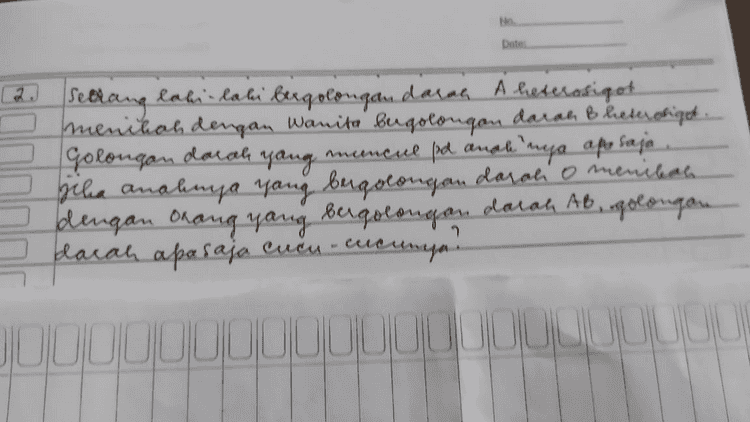 No.
Date:
2. Seorang laki-laki bergolongan darah A heterosigot
menikah dengan wanita bergolongan darah B heterosigot.
Golongan darah yang muncul pd anak²nya apa saja.
jika anaknya yang bergolongan darah O menikah
dengan orang yang bergolongan darah AB, golongan
darah apa saja cucu-cucunya?